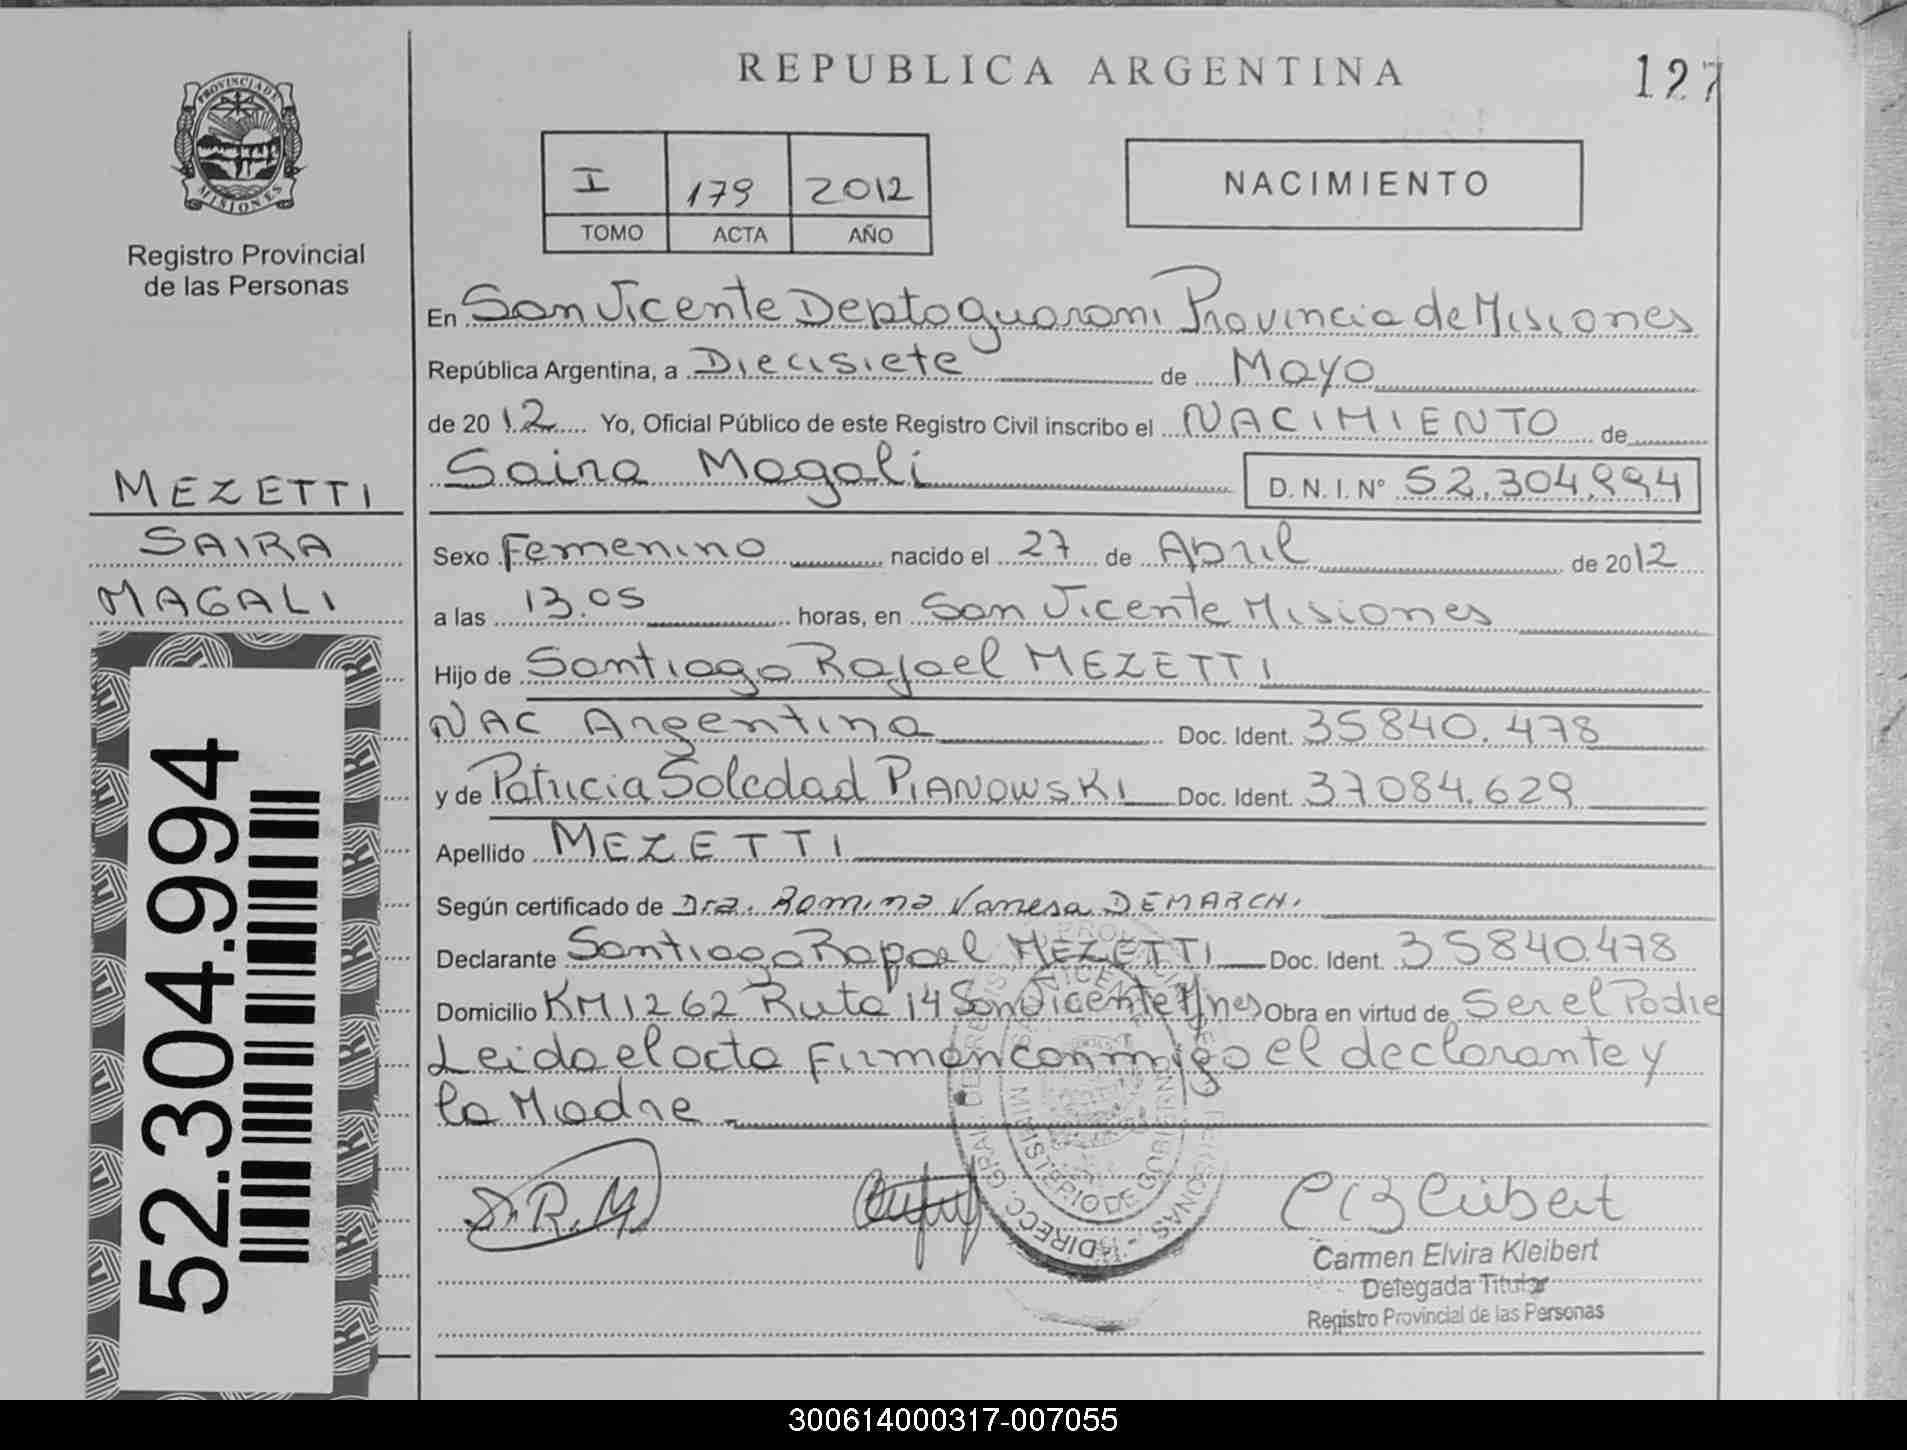 REPUBLICA ARGENTINA
127
PROVINCIA DE
MISIONES
Registro Provincial
de las Personas
I 179 2012
TOMO ACTA AÑO
NACIMIENTO
En San Vicente Depto Guarani Provincia de Misiones
República Argentina, a Diecisiete de Mayo
de 2012 Yo, Oficial Público de este Registro Civil inscribo el NACIMIENTO de
Saira Magali D. N. I. N° 52.304.994
MEZETTI
SAIRA
MAGALI
Sexo Femenino nacido el 27 de Abril de 2012
a las 13.05 horas, en San Vicente Misiones
Hijo de Santiago Rafael MEZETTI
NAC Argentina Doc. Ident. 35840.478
y de Patricia Soledad PIANOWSKI Doc. Ident. 37084.629
Apellido MEZETTI
Según certificado de Dra. Romina Vanesa DEMARCHI
Declarante Santiago Rafael MEZETTI Doc. Ident. 35840.478
Domicilio KM 1262 Ruta 14 San Vicente Mnes Obra en virtud de Ser el Padre
Leida el acta Firman conmigo el declarante y
la Madre.-
52.304.994
S.R.M
MINISTERIO DE GOBIERNO
Carmen Elvira Kleibert
Delegada Titular
Registro Provincial de las Personas
300614000317-007055